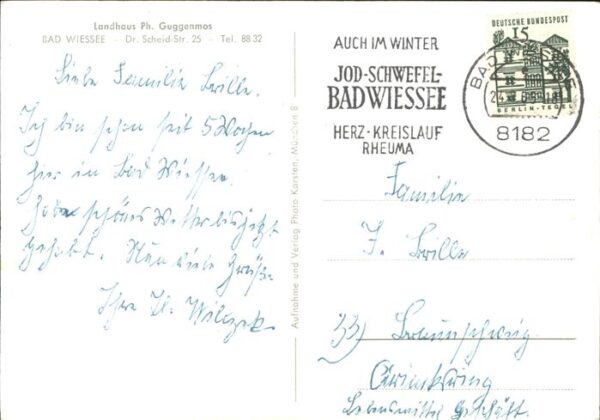 Landhaus Ph. Guggenmos
BAD WIESSEE - Dr. Scheid-Str. 25 - Tel. 88 32
Liebe Familie Brille.
Ich bin schon seit 5 Wochen
hier in Bad Wiessee.
Habe schönes Wetter bis jetzt
gehabt. Nun viele Grüße
Ihre Wilczek
Aufnahme und Verlag Photo Karsten, München 8
AUCH IM WINTER
JOD-SCHWEFEL-
BAD WIESSEE
HERZ · KREISLAUF
RHEUMA
DEUTSCHE BUNDESPOST
15
BERLIN-TEGEL
BAD WIESSEE
8182
Familie
Brille
33) Braunschweig
Lebensmittel Geschäft.